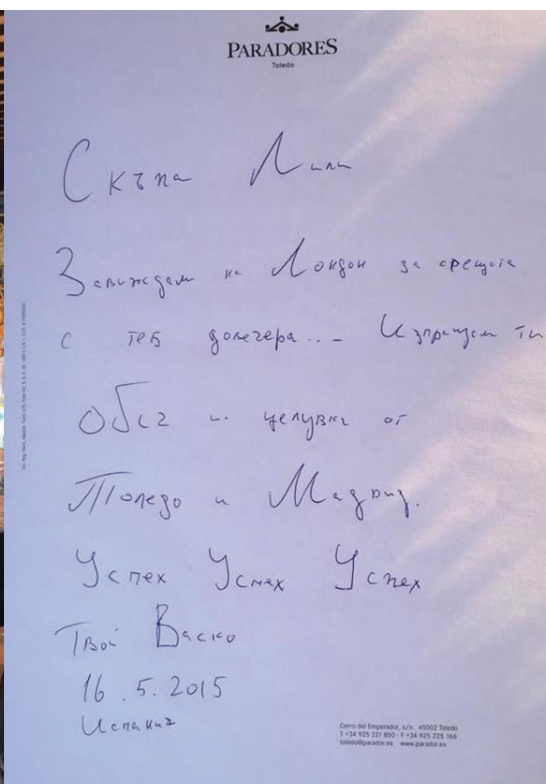 PARADORES
Toledo
Скъпа Лили
Завиждам на Лондон за срещата
с теб довечера... Изпращам ти
Обич и целувки от
Толедо и Мадрид.
Успех Успех Успех
Твой Васко
16.5.2015
Испания
Cerro del Emperador, s/n 45002 Toledo
T +34 925 221 850 - F +34 925 225 166
toledo@parador.es www.parador.es